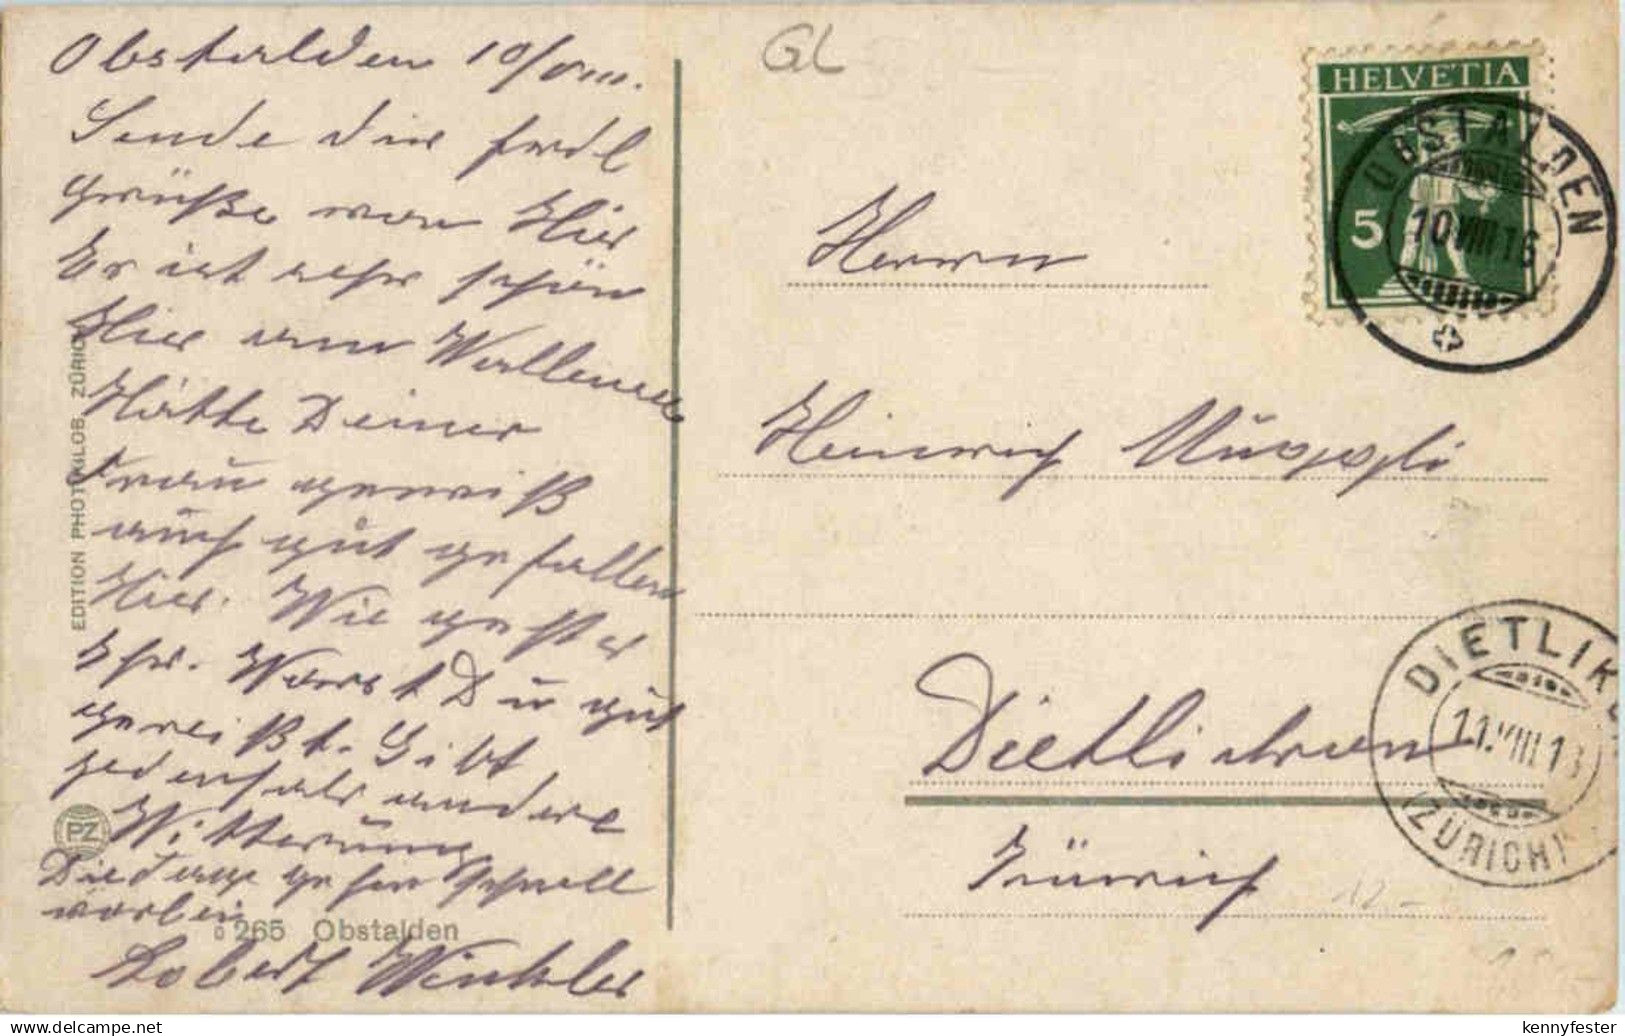 Obstalden 10/VIII.
Sende dir frdl
Grüße von Hier
Er ist sehr schön
Hier am Wallensee
Hätte Deiner
Frau gewiß
auch gut gefallen
Hier. Wie geht es
Ihr. Warst Du gut
gereißt. Gibt
jedenfals andere
Witterung
Die Tage gehen schnell
vorbei
Robert Winkler
EDITION PHOTOGLOB, ZÜRICH
PZ
265 Obstalden
GL
HELVETIA
5
OBSTALDEN
10 VIII 16
Herrn
Heinrich
Dietlikon
Zürich
DIETLIKON
11.VIII 1
(ZÜRICH)
12-
kennyfester